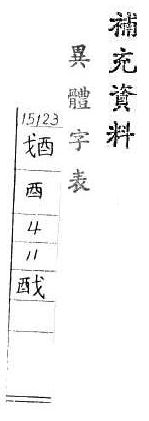 補充資料
異體字表
15123
酉
4
11